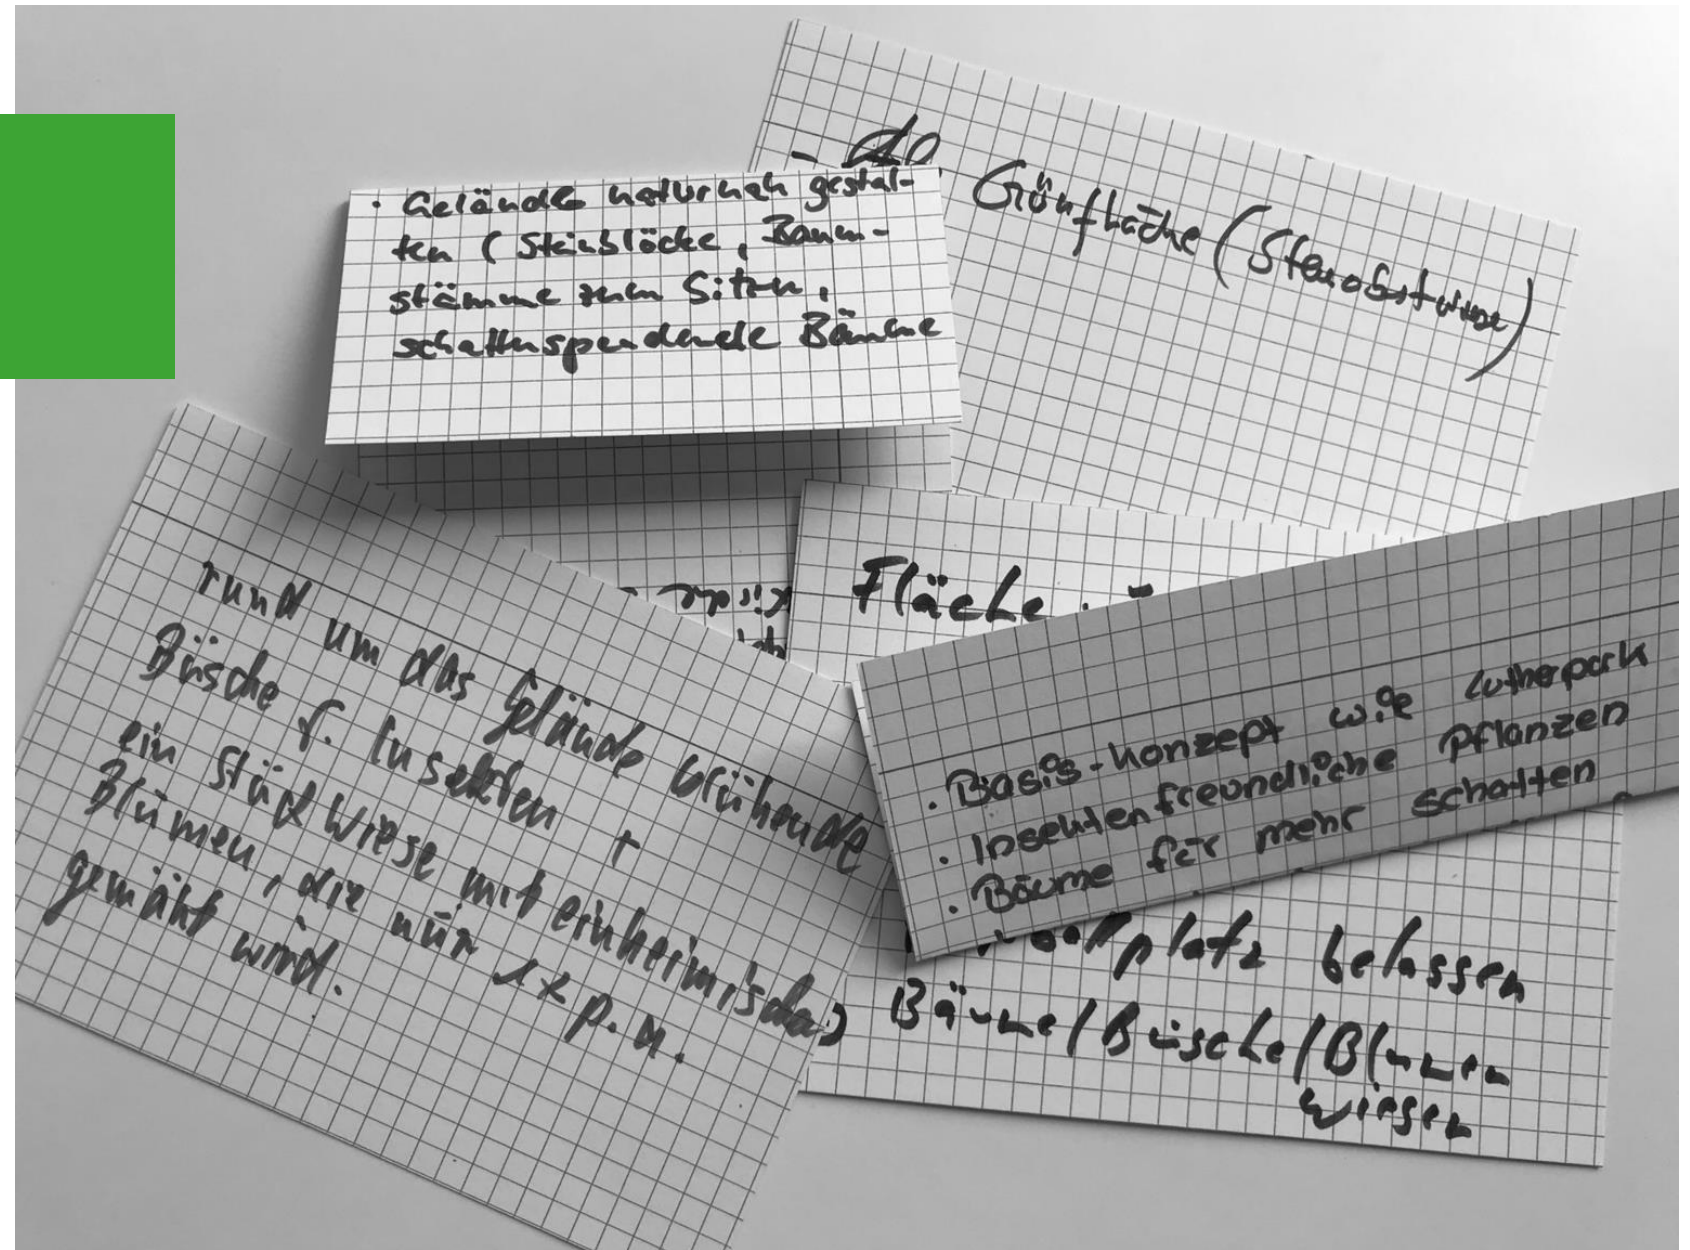 · Gelände naturnah gestal-
ten (Steinblöcke, Baum-
stämme zum Sitzen,
schattenspendende Bäume
Grünfläche (Streuobstwiese)
Fläche
rund um das Gelände blühende
Büsche f. Insekten +
ein Stück Wiese mit einheimischen
Blumen, die nur 1x p.a.
gemäht wird.
· Basis-Konzept wie Lutherpark
· Insektenfreundliche Pflanzen
· Bäume für mehr Schatten
platz belassen
Bäume/Büsche/Blumen
wiesen